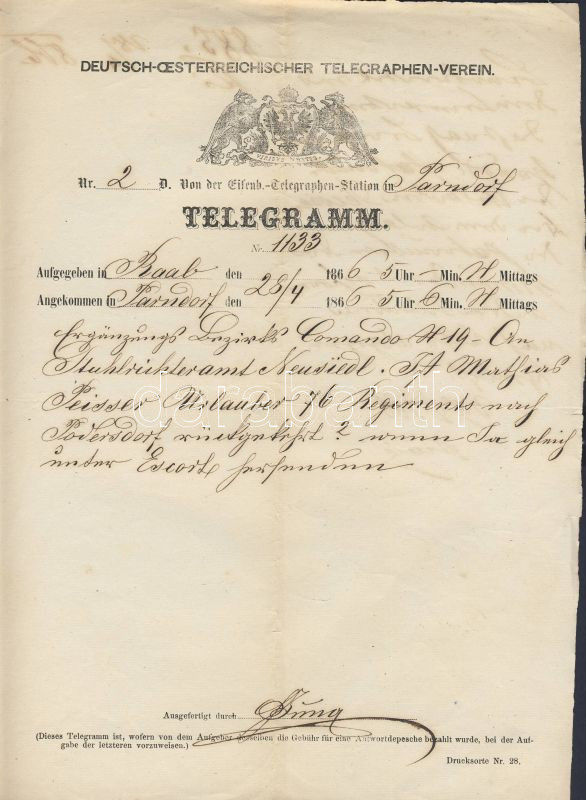 DEUTSCH-ŒSTERREICHISCHER TELEGRAPHEN-VEREIN.
VIRIBUS UNITIS
Nr. 2 D. Von der Eisenb.-Telegraphen-Station in Parndorf
TELEGRAMM.
Nr. 1133
Aufgegeben in Raab den 28/4 1866 5 Uhr – Min. N Mittags
Angekommen in Parndorf den 28/4 1866 5 Uhr 6 Min. N Mittags
Ergänzungs Bezirks Comando N 19 – An
Stuhlrichteramt Neusiedl. Ist Mathias
Peisser Urlauber 76 Regiments nach
Podersdorf rückgekehrt? wenn Ja gleich
unter Escort hersenden
darabanth
Ausgefertigt durch Jung
(Dieses Telegramm ist, wofern von dem Aufgeber desselben die Gebühr für eine Antwortdepesche bezahlt wurde, bei der Auf-
gabe der letzteren vorzuweisen.)
Drucksorte Nr. 28.